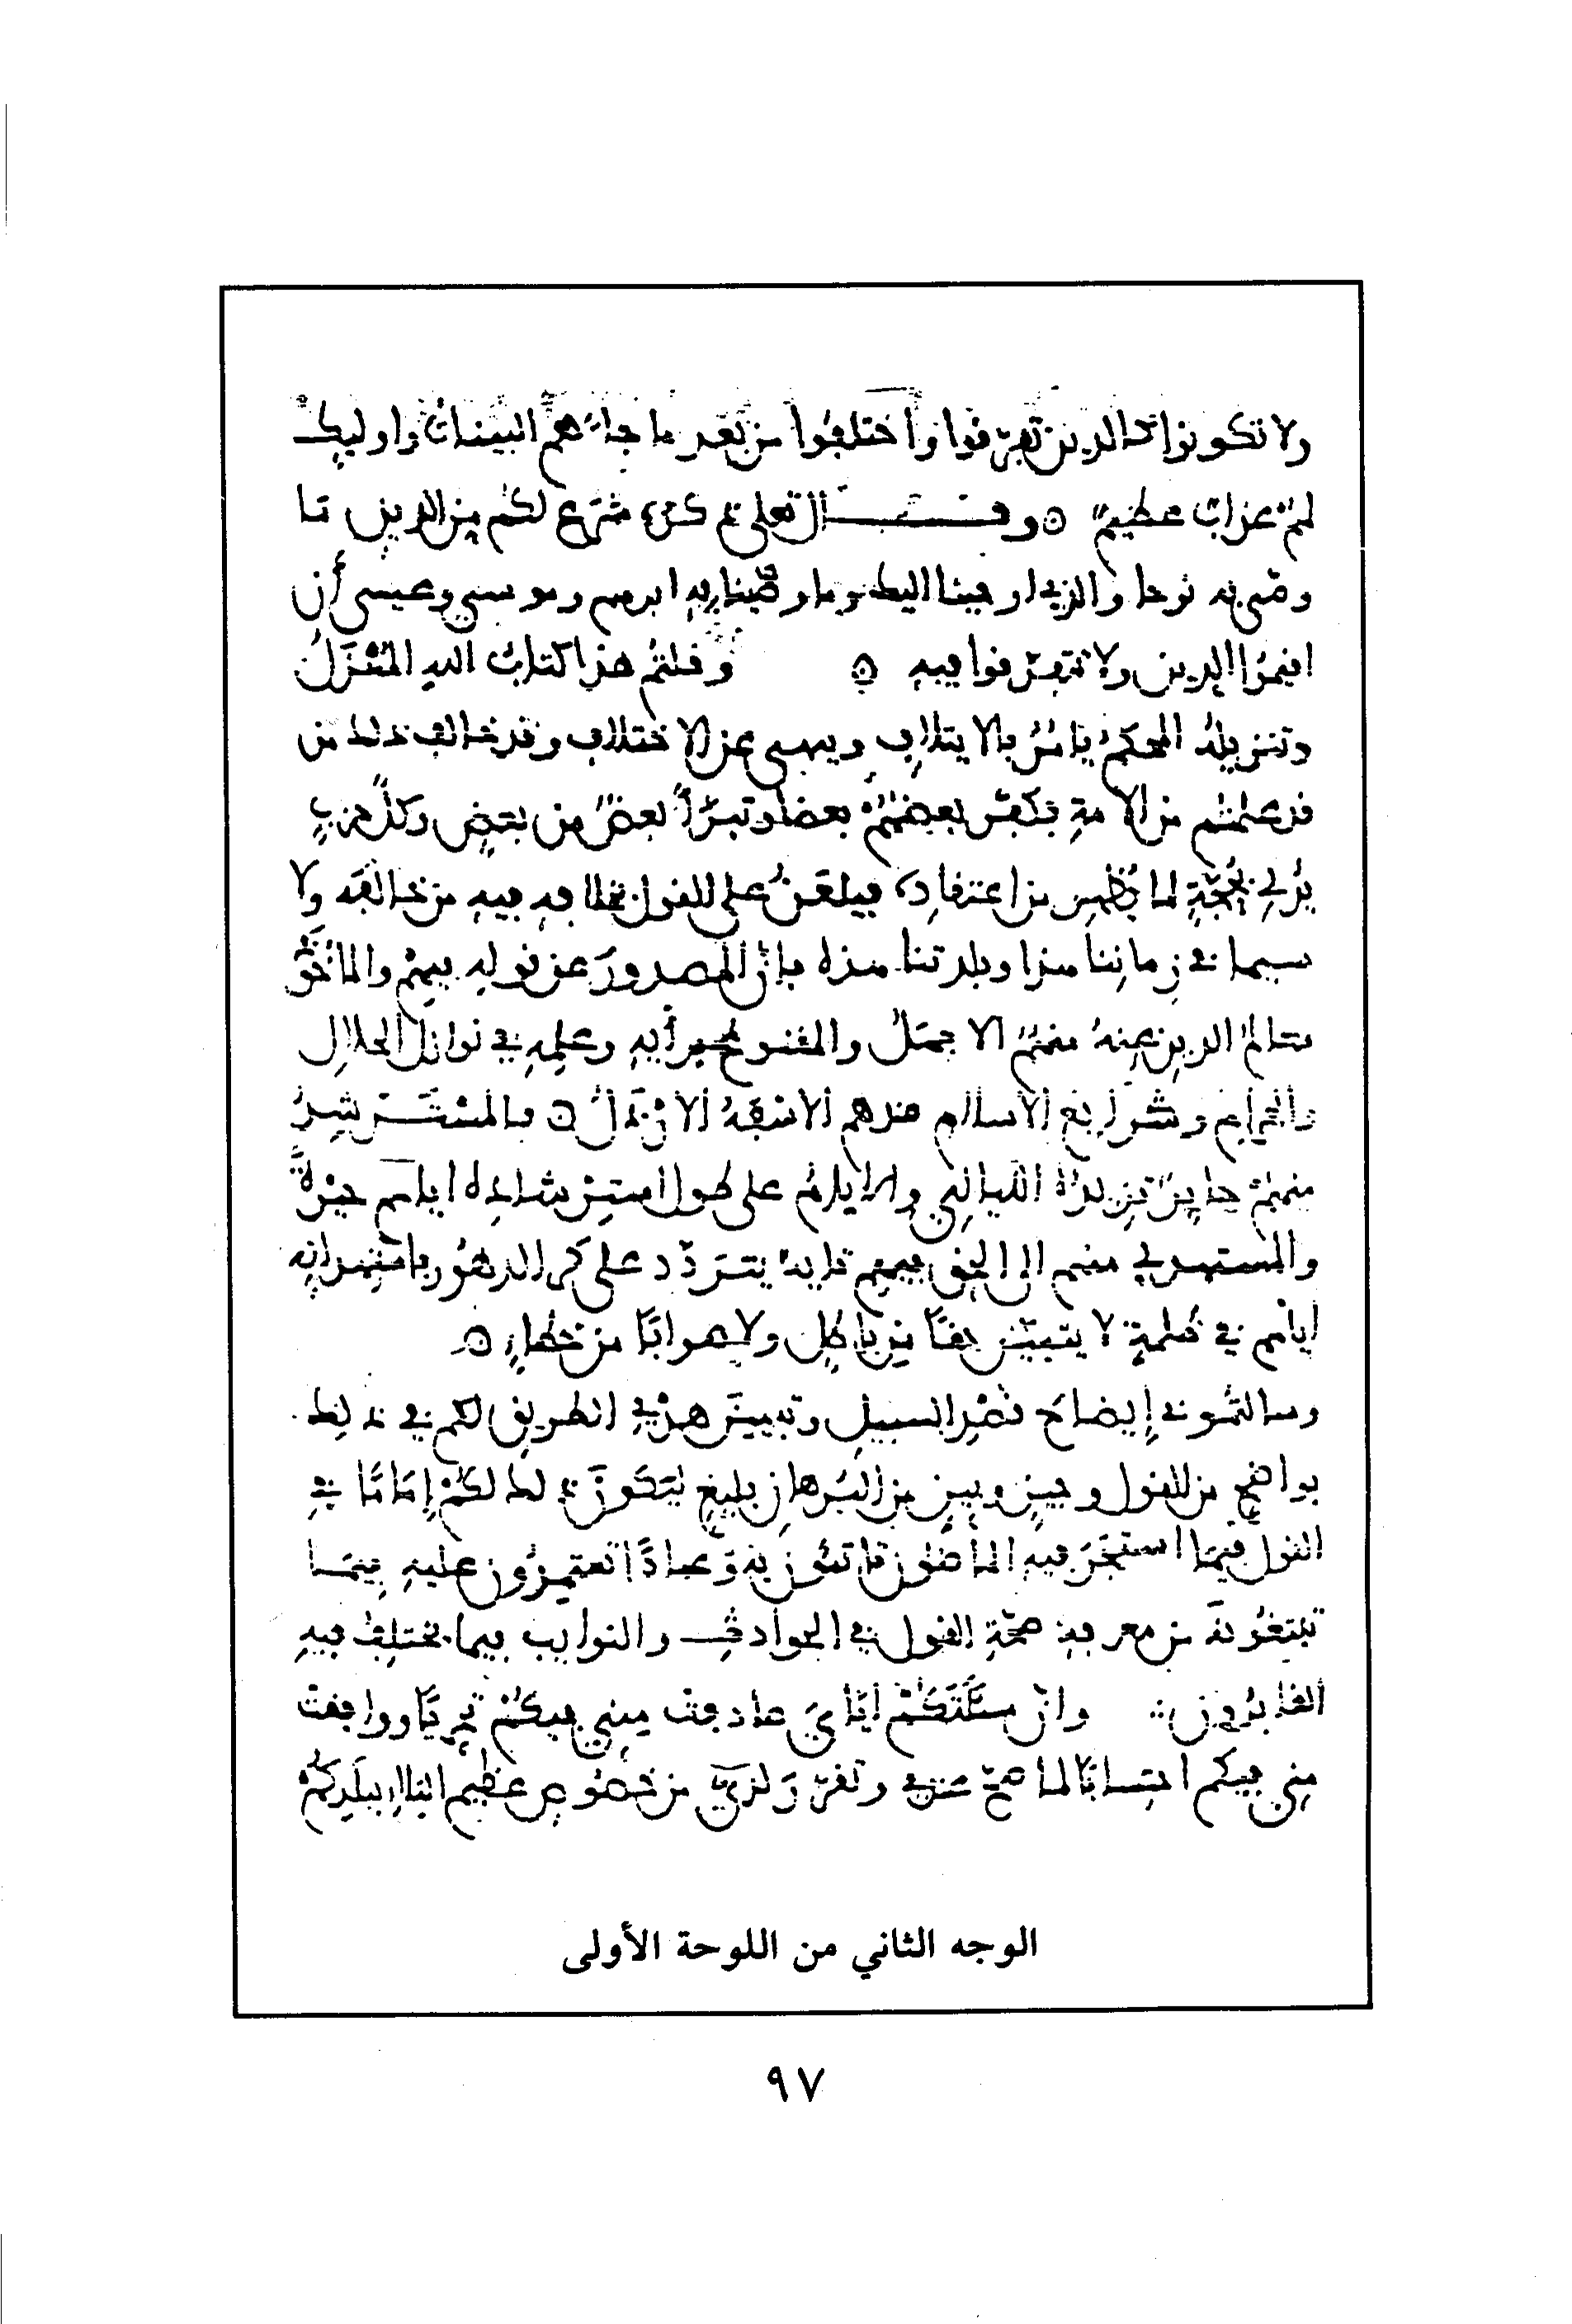 ولا تكونوا كالذين تفرقوا واختلفوا من بعد ما جاءهم البينات واوليك
لهم عذاب عظيم ٥ وقــال تعلى ذكره شرع لكم من الدين ما
وصى به نوحا والذي اوحينا اليك وما وصينا به ابرهيم وموسى وعيسى أن
اقيموا الدين ولا تتفرقوا فيه ٥ وقلتم هذا كتاب الله المنزل
وتنزيله المحكم يأمر بالايتلاف وينهى عن الاختلاف وقد خالف ذلك من
قد علمتم من الأمة فكفر بعضهم بعضا وتبرأ بعض من بعض وكل حزب
يدلي بحجة لما يظهر من اعتقاده فيلعن على القول بخلافه فيه من خالفه ولا
سيما في زماننا هذا وبلدتنا هذه فإن المصدور عن قوله فيهم والمأخوذ
معالم الدين عنه منهم الاجهل والمقنوع برأيه وعلمه في نوازل الحلال
والحرام وشرايع الاسلام عندهم الاسفه الارذل ٥ فالمسترشد
منهم حاير تزيده الليالي والايام على طول استرشاده اياهم حيرة
والمستهدي منهم الى الحق فيهم تايه يتردد على كر الدهور باستهدايه
إياهم في ظلمة لا يتبين حقا من باطل ولا صوابا من خطاء ٥
وسالتموني إيضاح قصد السبيل وتبيين هدي الطريق لكم في ذلك
بواضح من القول وجيز وبين من البرهان بليغ ليكون ذلك لكم إماما في
القول فيما اشتجر فيه الماضون تأتمون به وعمادا تعتمدون عليه فيما
تبتغونه من معرفة صحة القول في الحوادث والنوايب فيما يختلف فيه
الغابرون ٠٠ وان مسئلتكم اياي صادفت مني فيكم تحريا ووافقت
مني فيكم احتسابا لما صح عندي وتقرر لدي من خصوص عظيم البلاء ببلدكم
الوجه الثاني من اللوحة الأولى
٩٧